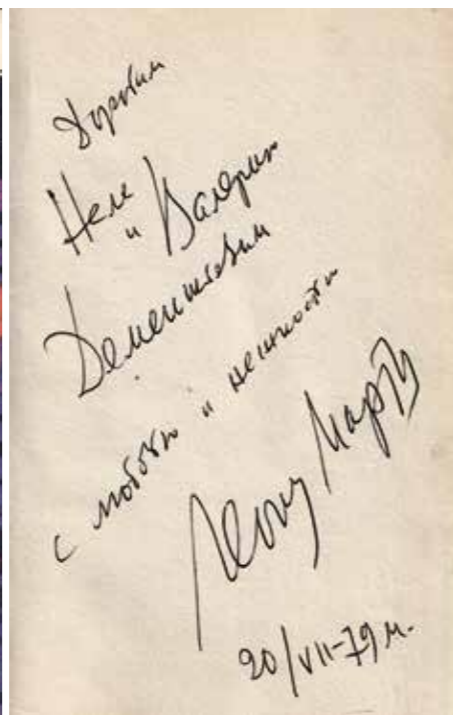 Дорогим
Неле и Валерию
Дементьевым
с любовью и нежностью
Леонид Март
20/VII-79 м.